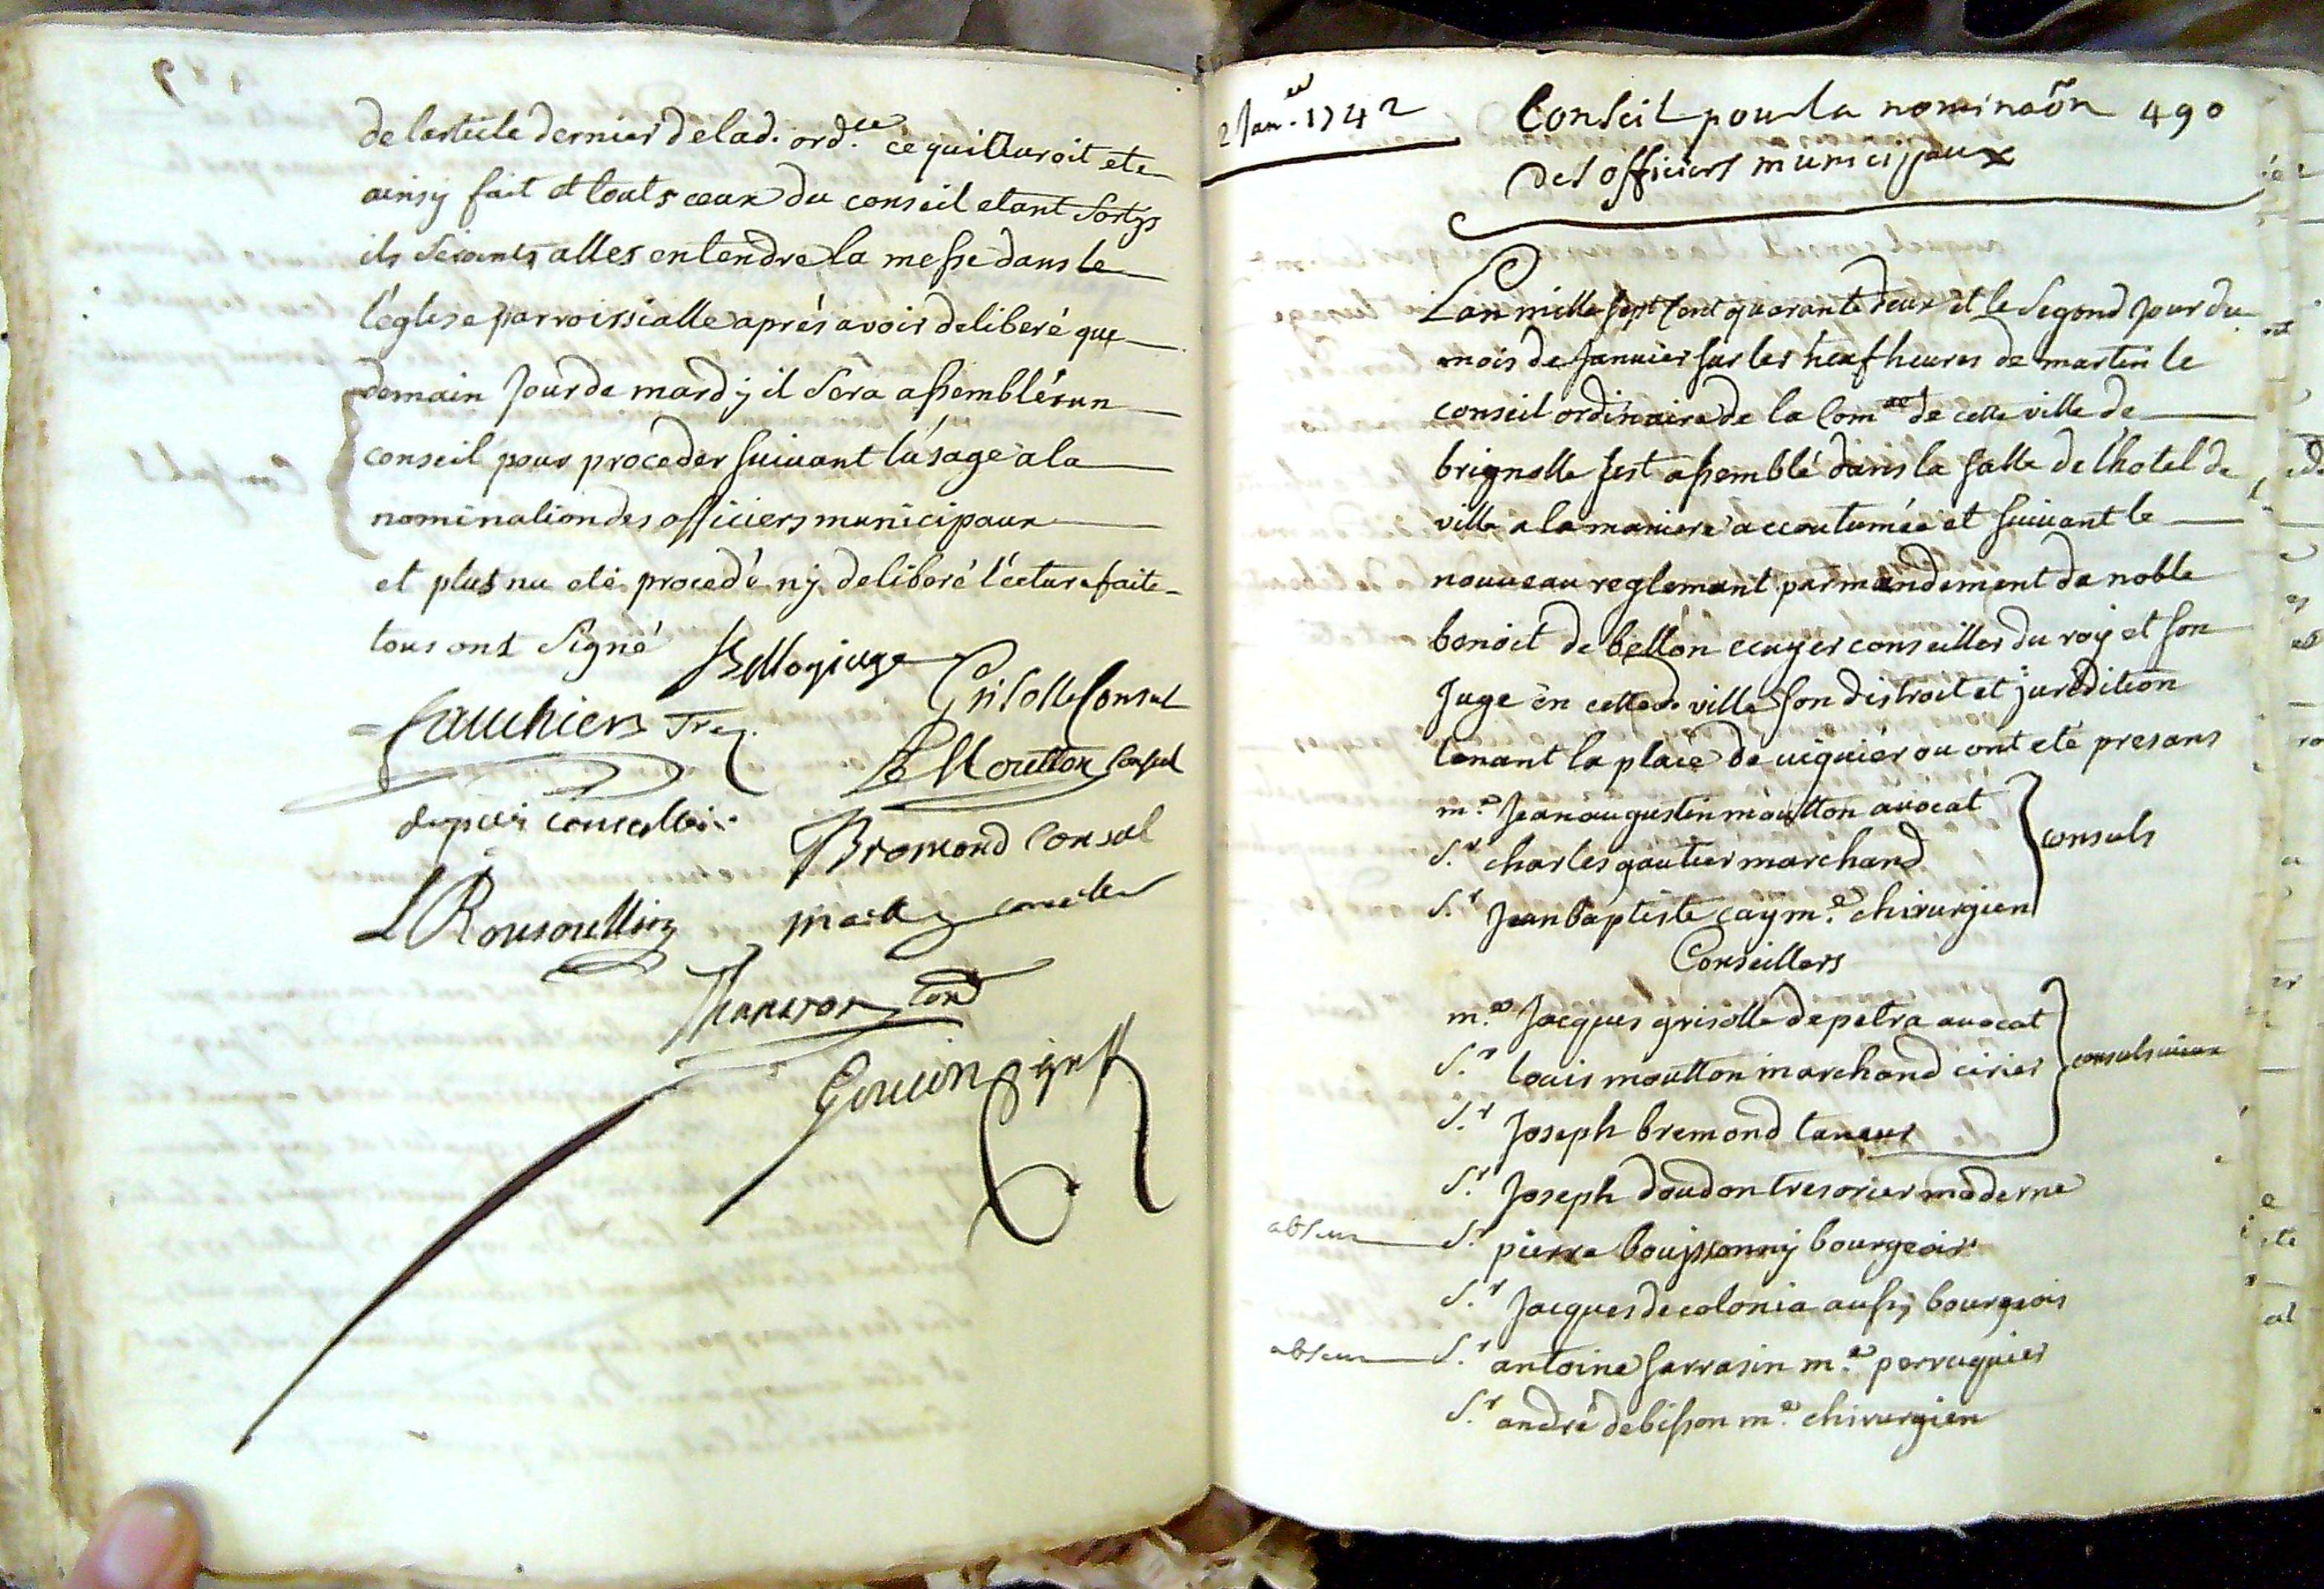 de larticle dernier de lad. ord.ce ce qui auroit ete
ainsy fait et touts ceux du conseil etant sortys
ils seroients alles entendre la messe dans le
l'eglise parroissialle aprés avoir deliberé que
demain jour de mardy il sera assemblé un
conseil pour proceder suivant lusage a la
nomination des officiers municipaux
et plus nu eté procedé ny deliberé lecture faite
tous ont signé
Bellon juge
Grisolle Consul
fauchier Trez.
L Moutton Consul
conseiller
Bremond Consul
L Rousoullin
conseiller
Gouin greff
2 Jan.er 1742
Conseil pour la nominaõn 490
des officiers municipaux
Lan mille sept cent quarante deux et le segond jour du
mois de janvier sur les neuf heures de martin le
conseil ordinaire de la Com.té de cette ville de
brignolle sest assemblé dans la salle de l'hotel de
ville a la maniere accoutumée et suivant le
nouveau reglemant par mandement de noble
benoit de bellon ecuyer conseiller du roy et son
juge en cetted. ville son distroit et juridition
tenant la place de viguier ou ont eté presans
m.e jean augustin moutton avocat
S.r charles gautier marchand
consuls
S.r jean baptiste cay m.e chirurgien
Conseillers
m.e jacques grisolle depetra avocat
S.r louis moutton marchand cirier
consuls vieux
S.r joseph bremond taneur
S.r joseph doudon tresorier moderne
absent S.r pierre bouyssonny bourgeois
S.r jacques de colonia aussy bourgeois
absent S.r antoine sarrasin m.e perruquier
S.r andré debisson m.e chirurgien